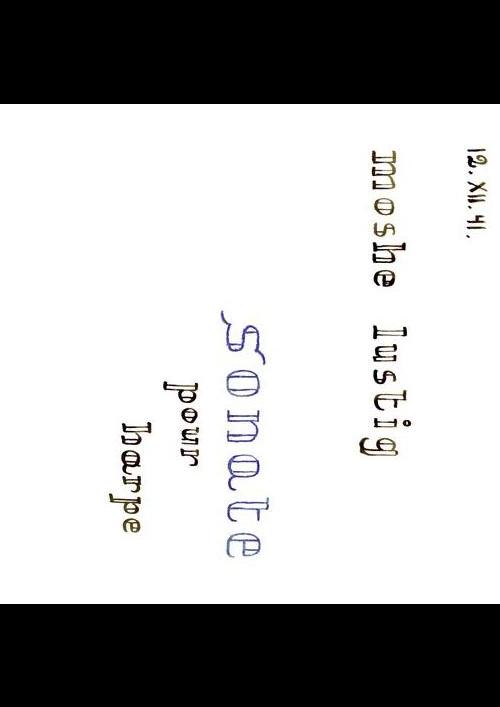 12. XII. 41.
moshe lustig
Sonate
pour
harpe